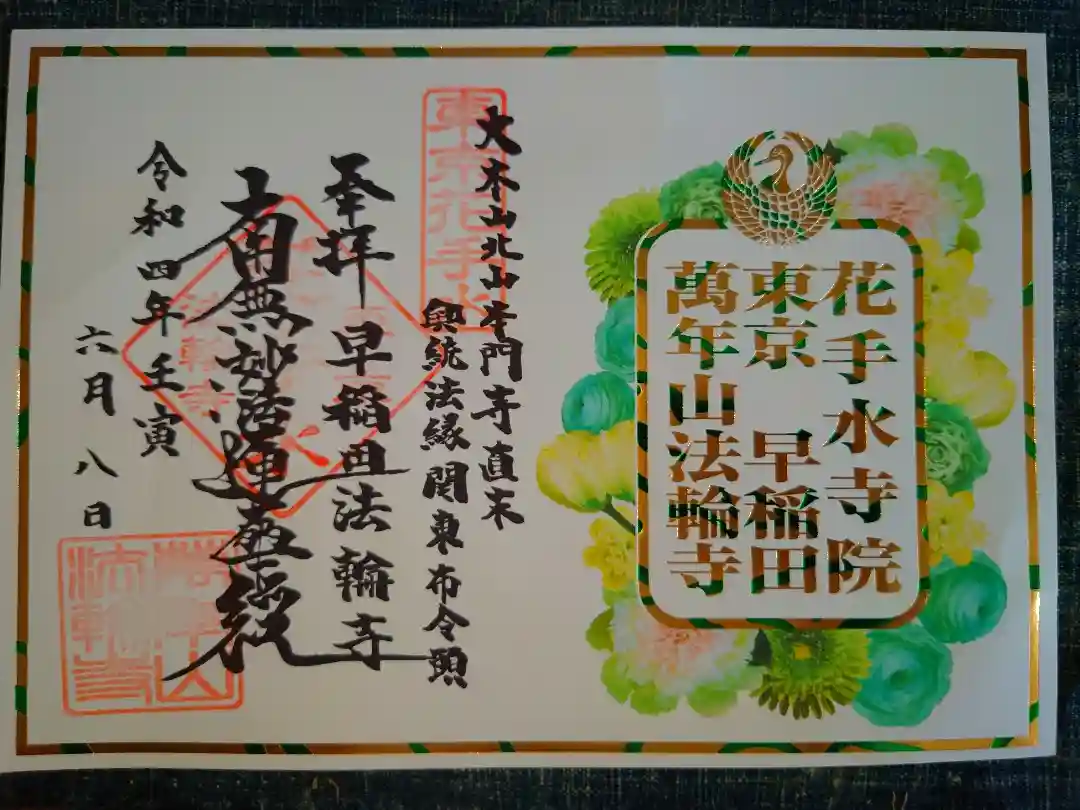 花手水寺院
東京 早稲田
萬年山法輪寺
大本山北山本門寺直末
興統法縁関東布令頭
東京花手水
奉拝 早稲田法輪寺
南無妙法蓮華経
法輪寺
令和四年壬寅
六月八日